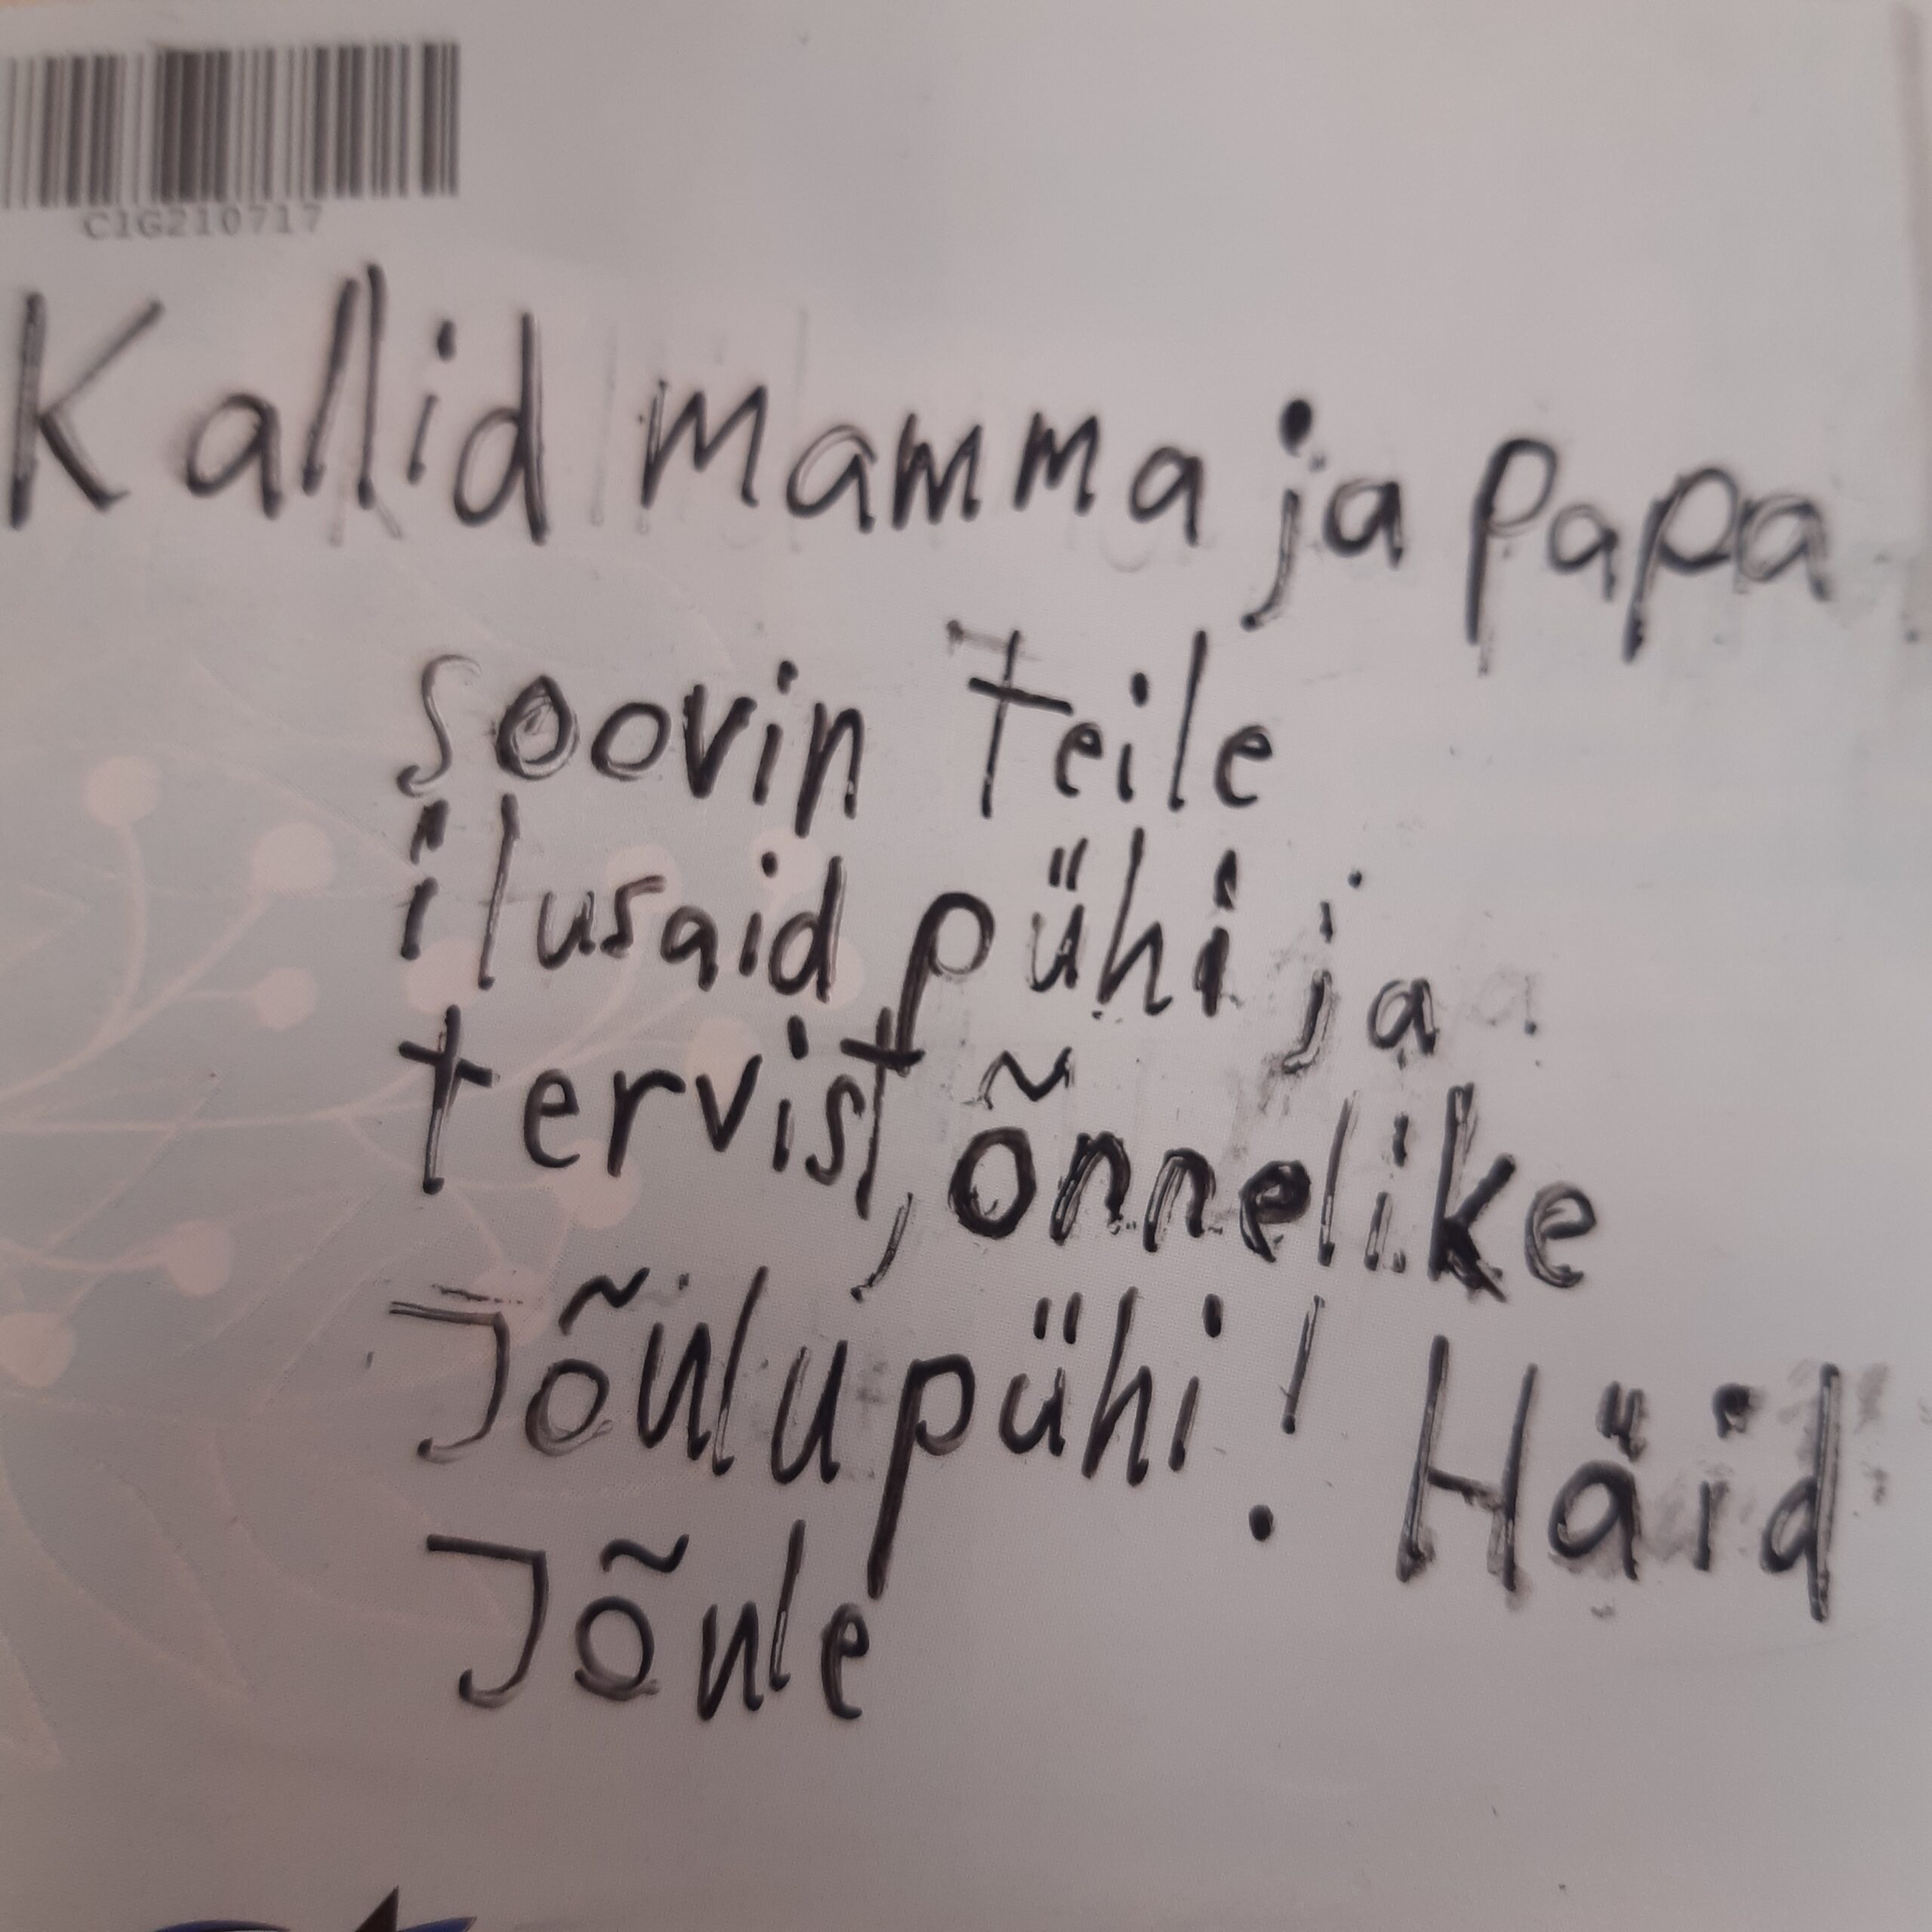 C1G210717
Kallid mamma ja papa
soovin Teile
ilusaid pühi ja
tervist, õnnelike
Jõulupühi! Häid
Jõule